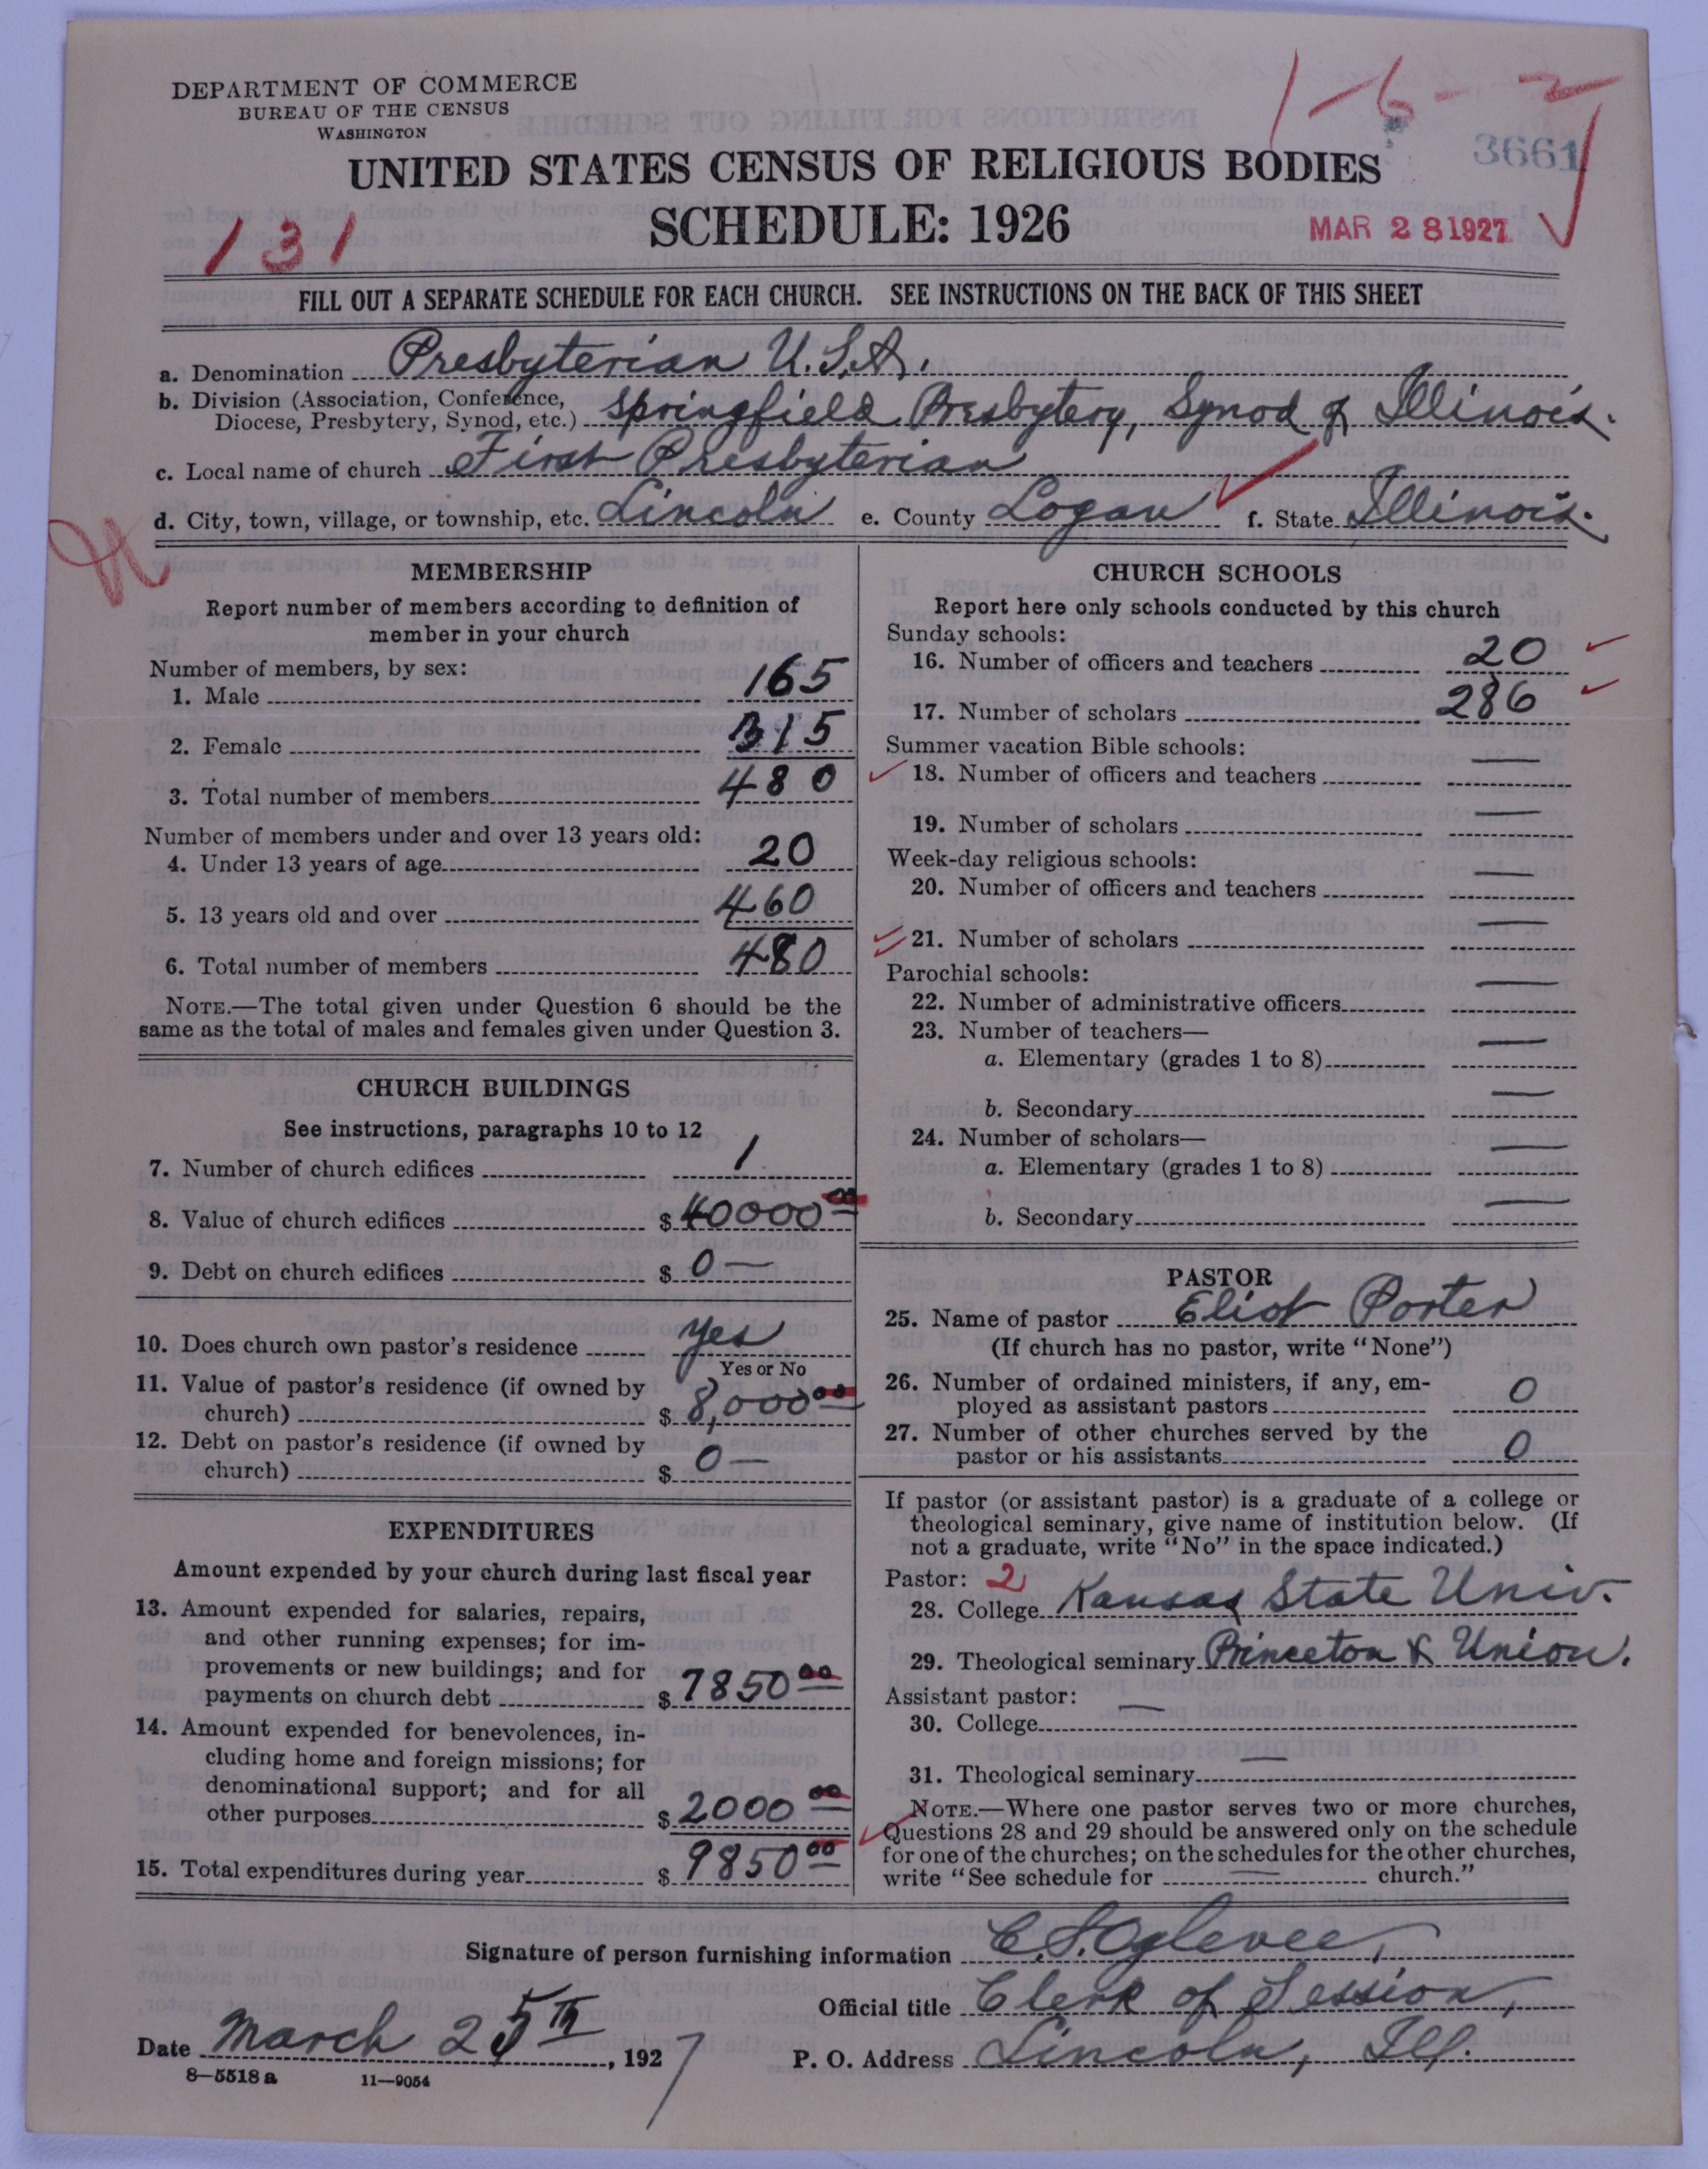 DEPARTMENT OF COMMERCE
BUREAU OF THE CENSUS
WASHINGTON
1-6-2
3661
UNITED STATES CENSUS OF RELIGIOUS BODIES
131
SCHEDULE: 1926
MAR 28 1927
FILL OUT A SEPARATE SCHEDULE FOR EACH CHURCH. SEE INSTRUCTIONS ON THE BACK OF THIS SHEET
a. Denomination Presbyterian U.S.A.
b. Division (Association, Conference, Diocese, Presbytery, Synod, etc.) Springfield Presbytery, Synod of Illinois.
c. Local name of church First Presbyterian
d. City, town, village, or township, etc. Lincoln e. County Logan f. State Illinois.
MEMBERSHIP
Report number of members according to definition of
member in your church
Number of members, by sex:
1. Male 165
2. Female 315
3. Total number of members 480
Number of members under and over 13 years old:
4. Under 13 years of age 20
5. 13 years old and over 460
6. Total number of members 480
NOTE.—The total given under Question 6 should be the
same as the total of males and females given under Question 3.
CHURCH BUILDINGS
See instructions, paragraphs 10 to 12
7. Number of church edifices 1
8. Value of church edifices $ 40000 00
9. Debt on church edifices $ 0 —
10. Does church own pastor's residence Yes
Yes or No
11. Value of pastor's residence (if owned by
church) $ 8,000 00
12. Debt on pastor's residence (if owned by
church) $ 0 —
EXPENDITURES
Amount expended by your church during last fiscal year
13. Amount expended for salaries, repairs,
and other running expenses; for im-
provements or new buildings; and for
payments on church debt $ 7850 00
14. Amount expended for benevolences, in-
cluding home and foreign missions; for
denominational support; and for all
other purposes $ 2000 00
15. Total expenditures during year $ 9850 00
CHURCH SCHOOLS
Report here only schools conducted by this church
Sunday schools:
16. Number of officers and teachers 20
17. Number of scholars 286
Summer vacation Bible schools:
18. Number of officers and teachers —
19. Number of scholars —
Week-day religious schools:
20. Number of officers and teachers —
21. Number of scholars —
Parochial schools:
22. Number of administrative officers —
23. Number of teachers—
a. Elementary (grades 1 to 8) —
b. Secondary —
24. Number of scholars—
a. Elementary (grades 1 to 8) —
b. Secondary —
PASTOR
25. Name of pastor Eliot Porter
(If church has no pastor, write "None")
26. Number of ordained ministers, if any, em-
ployed as assistant pastors 0
27. Number of other churches served by the
pastor or his assistants 0
If pastor (or assistant pastor) is a graduate of a college or
theological seminary, give name of institution below. (If
not a graduate, write "No" in the space indicated.)
Pastor: 2
28. College Kansas State Univ.
29. Theological seminary Princeton & Union.
Assistant pastor:
30. College —
31. Theological seminary —
NOTE.—Where one pastor serves two or more churches,
Questions 28 and 29 should be answered only on the schedule
for one of the churches; on the schedules for the other churches,
write "See schedule for — church."
Signature of person furnishing information C. S. Oglevee,
Official title Clerk of Session,
Date March 25th, 1927
P. O. Address Lincoln, Ill.
8—5518 a 11—9054